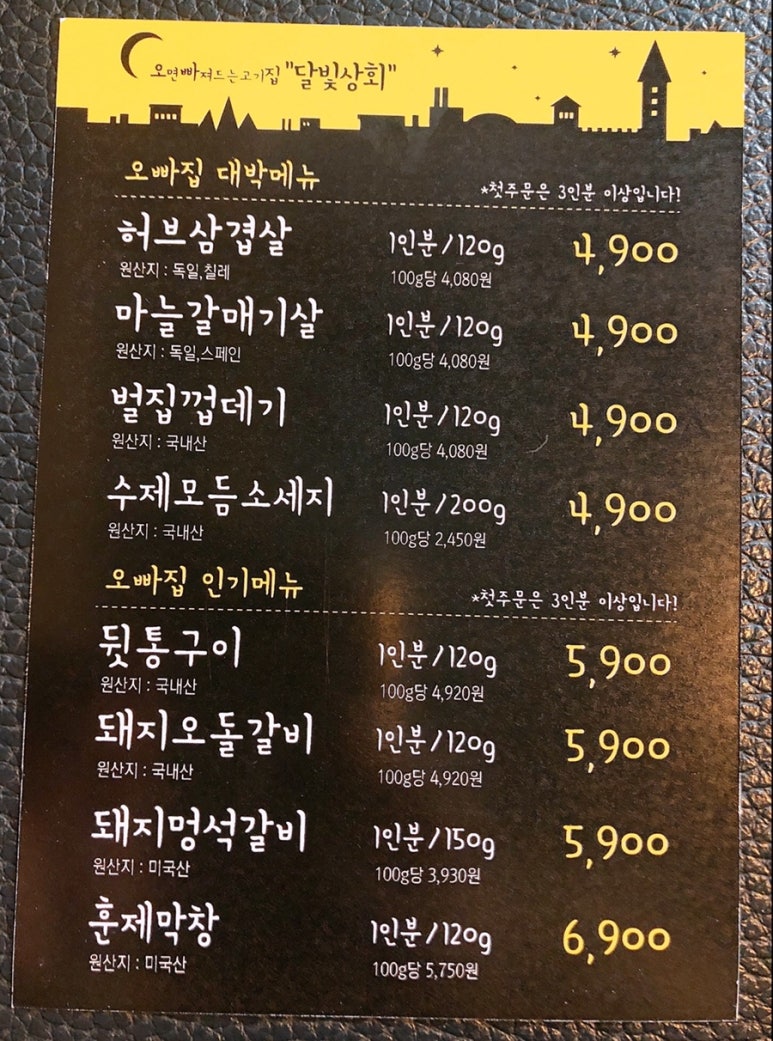 오면빠져드는고기집 "달빛상회"
오빠집 대박메뉴
*첫주문은 3인분 이상입니다!
허브삼겹살 1인분/120g 4,900
원산지 : 독일,칠레 100g당 4,080원
마늘갈매기살 1인분/120g 4,900
원산지 : 독일,스페인 100g당 4,080원
벌집껍데기 1인분/120g 4,900
원산지 : 국내산 100g당 4,080원
수제모듬소세지 1인분/200g 4,900
원산지 : 국내산 100g당 2,450원
오빠집 인기메뉴
*첫주문은 3인분 이상입니다!
뒷통구이 1인분/120g 5,900
원산지 : 국내산 100g당 4,920원
돼지오돌갈비 1인분/120g 5,900
원산지 : 국내산 100g당 4,920원
돼지멍석갈비 1인분/150g 5,900
원산지 : 미국산 100g당 3,930원
훈제막창 1인분/120g 6,900
원산지 : 미국산 100g당 5,750원